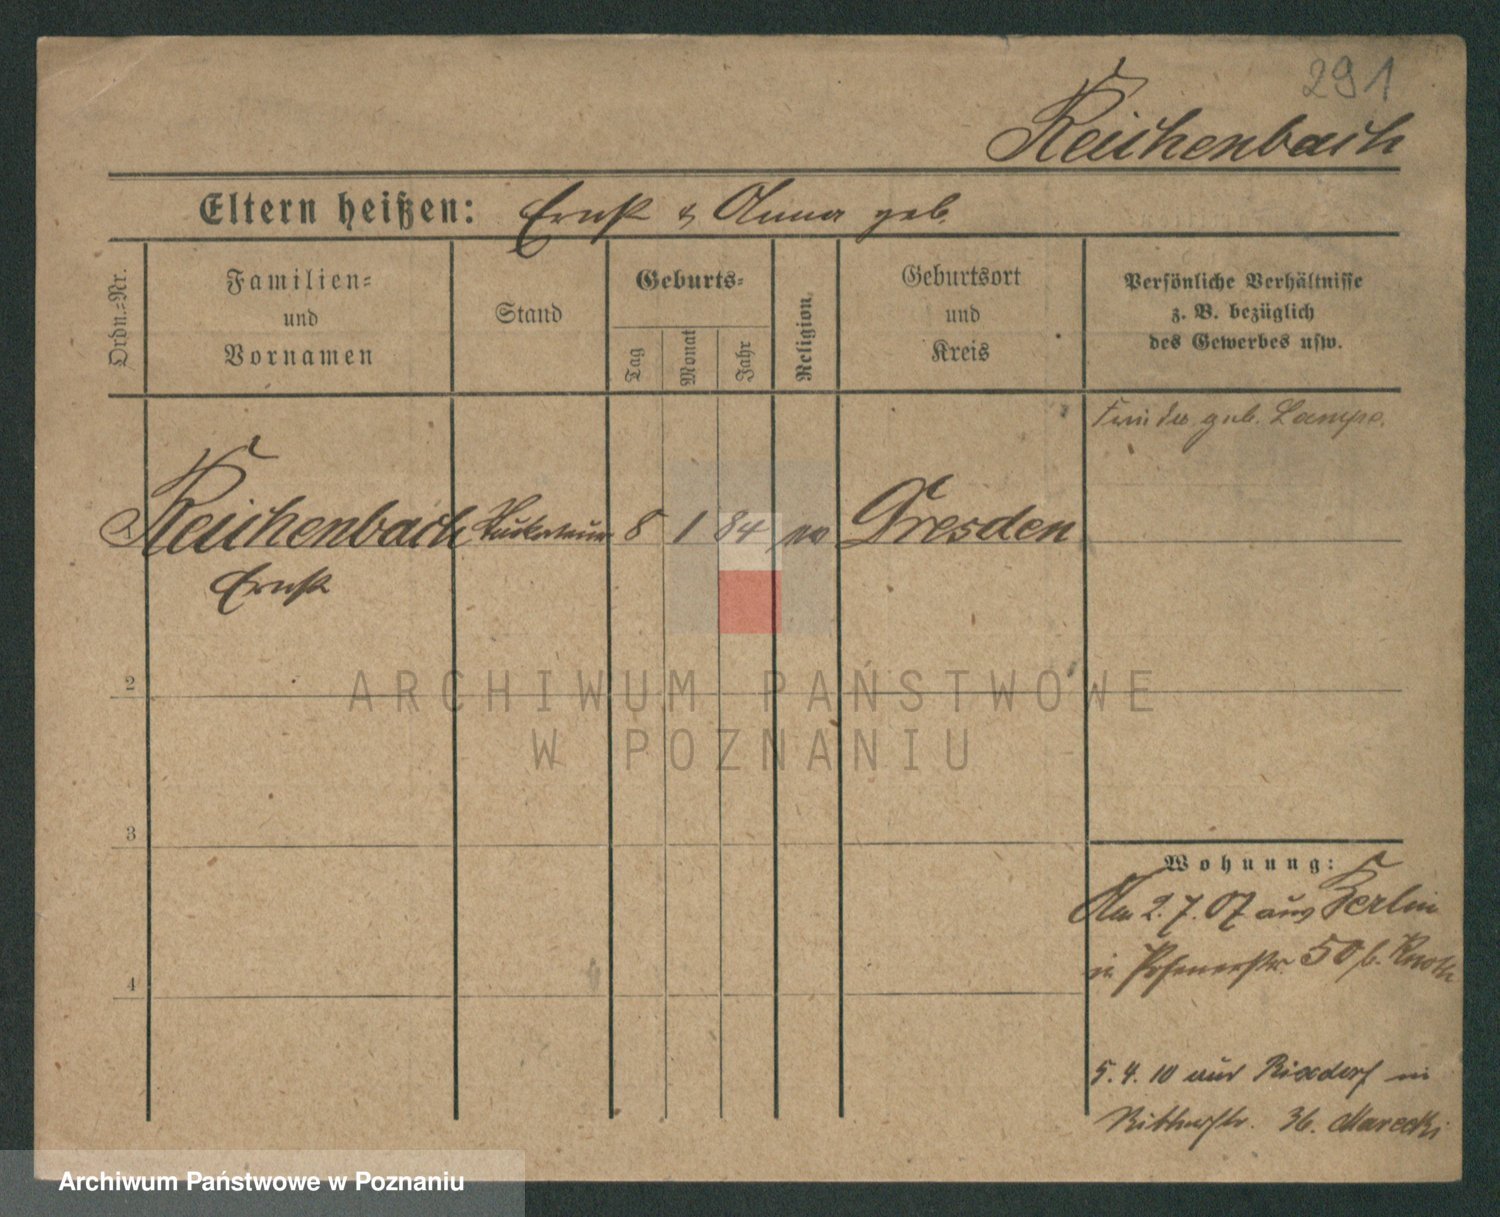 291
Reichenbach
Eltern heißen: Ernst & Anna geb.
Ordn.-Nr.
Familien-
und
Vornamen
Stand
Geburts-
Tag
Monat
Jahr
Religion
Geburtsort
und
Kreis
Persönliche Verhältnisse
z. B. bezüglich
des Gewerbes usw.
geb. Lampe.
Reichenbach 8 1 84 Dresden
Ernst
2
3
4
Wohnung:
Am 2.7.07 aus Berlin
in Posenerstr. 50 b.
5.4.10 aus Rixdorf in
Ritterstr. 36. Marecki
ARCHIWUM PAŃSTWOWE
W POZNANIU
Archiwum Państwowe w Poznaniu